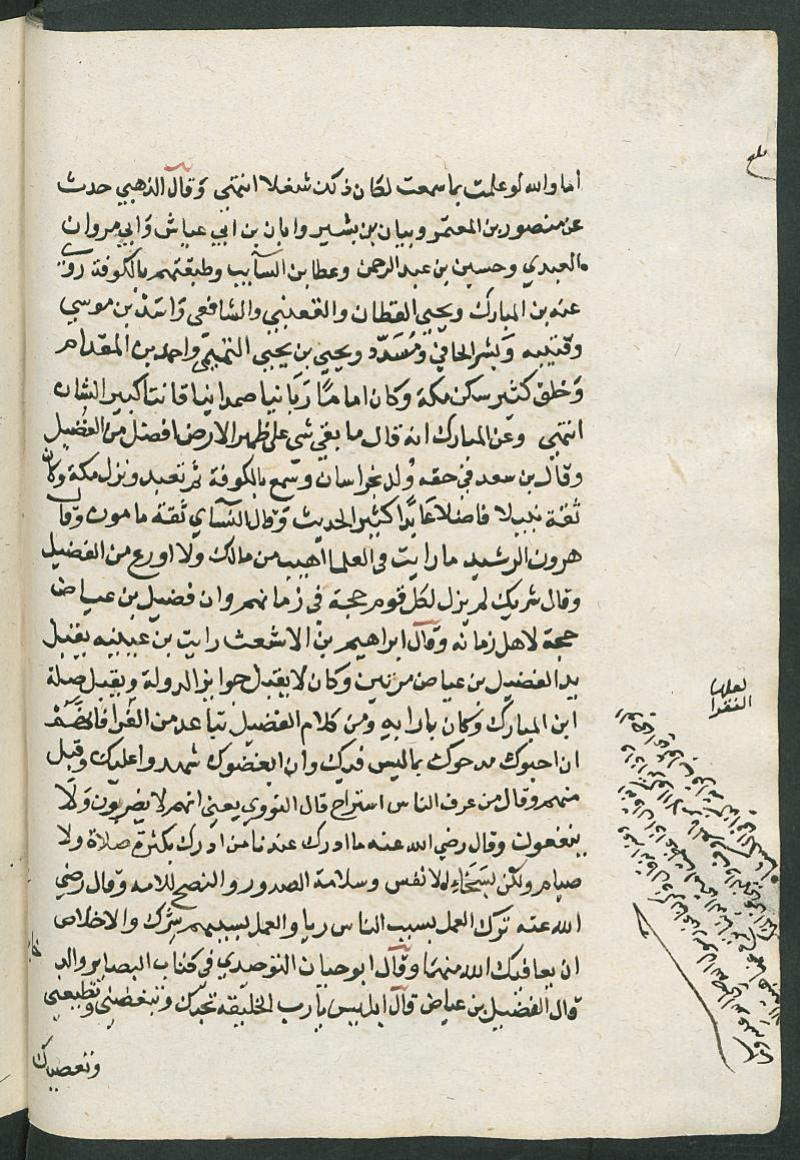 اما والله لو علمت بما سمعت لكان ذلك شغلا انتهي وقال الذهبي حدث
عن منصور بن المعتمر وبيان بن بشير وابان بن ابي عياش وابي مروان
العبدي وحسين بن عبد الرحمن وعطا بن السآيب وطبقتهم بالكوفة روي
عنه بن المبارك ويحيي القطان والقعنبي والشافعي واسد بن موسي
وقتيبه وبشر الحافي ومسدد ويحيي بن يحيي التميمي واحمد بن المقدام
وخلق كثير سكن مكة وكان اماما ربانيا صمدانيا قانتا كبير الشان
انتهي وعن المبارك انه قال ما بقي شي علي ظهر الارض افضل من الفضيل
وقال بن سعد في حقه ولد بخراسان وسمع بالكوفة ثم تعبد ونزل مكة وكان
ثقة نبيلا فاضلا عابدا كثير الحديث وقال النسآي ثقة مامون وقال
هرون الرشيد ما رايت في العلما اهيب من مالك ولا اورع من الفضيل
وقال شريك لم يزل لكل قوم حجة في زمانهم وان فضيل بن عياض
حجة لاهل زمانه وقال ابراهيم بن الاشعث رايت بن عيينه يقبل
يد الفضيل بن عياض مرتين وكان لا يقبل جوايز الدولة ويقبل صلة
ابن المبارك وكان بارا به ومن كلام الفضيل تباعد من القرا فانهم
ان احبوك مدحوك بما ليس فيك وان ابغضوك شهدوا عليك وقبل
منهم وقال من عرف الناس استراح قال النووي يعني انهم لا يضرون ولا
ينفعون وقال رضي الله عنه ما ادرك عندنا من ادرك بكثرة صلاة ولا
صيام ولكن بسخاء الانفس وسلامة الصدور والنصح للامه وقال رضي
الله عنه ترك العمل بسبب الناس ريا والعمل بسببهم شرك والاخلاص
ان يعافيك الله منهما وقال ابو حيان التوحيدي في كتاب البصاير
قال الفضيل بن عياض قال ابليس يارب الخليقه تحبك وتبغضني وتطيعني
وتعصيك
لعلها
الفقرا